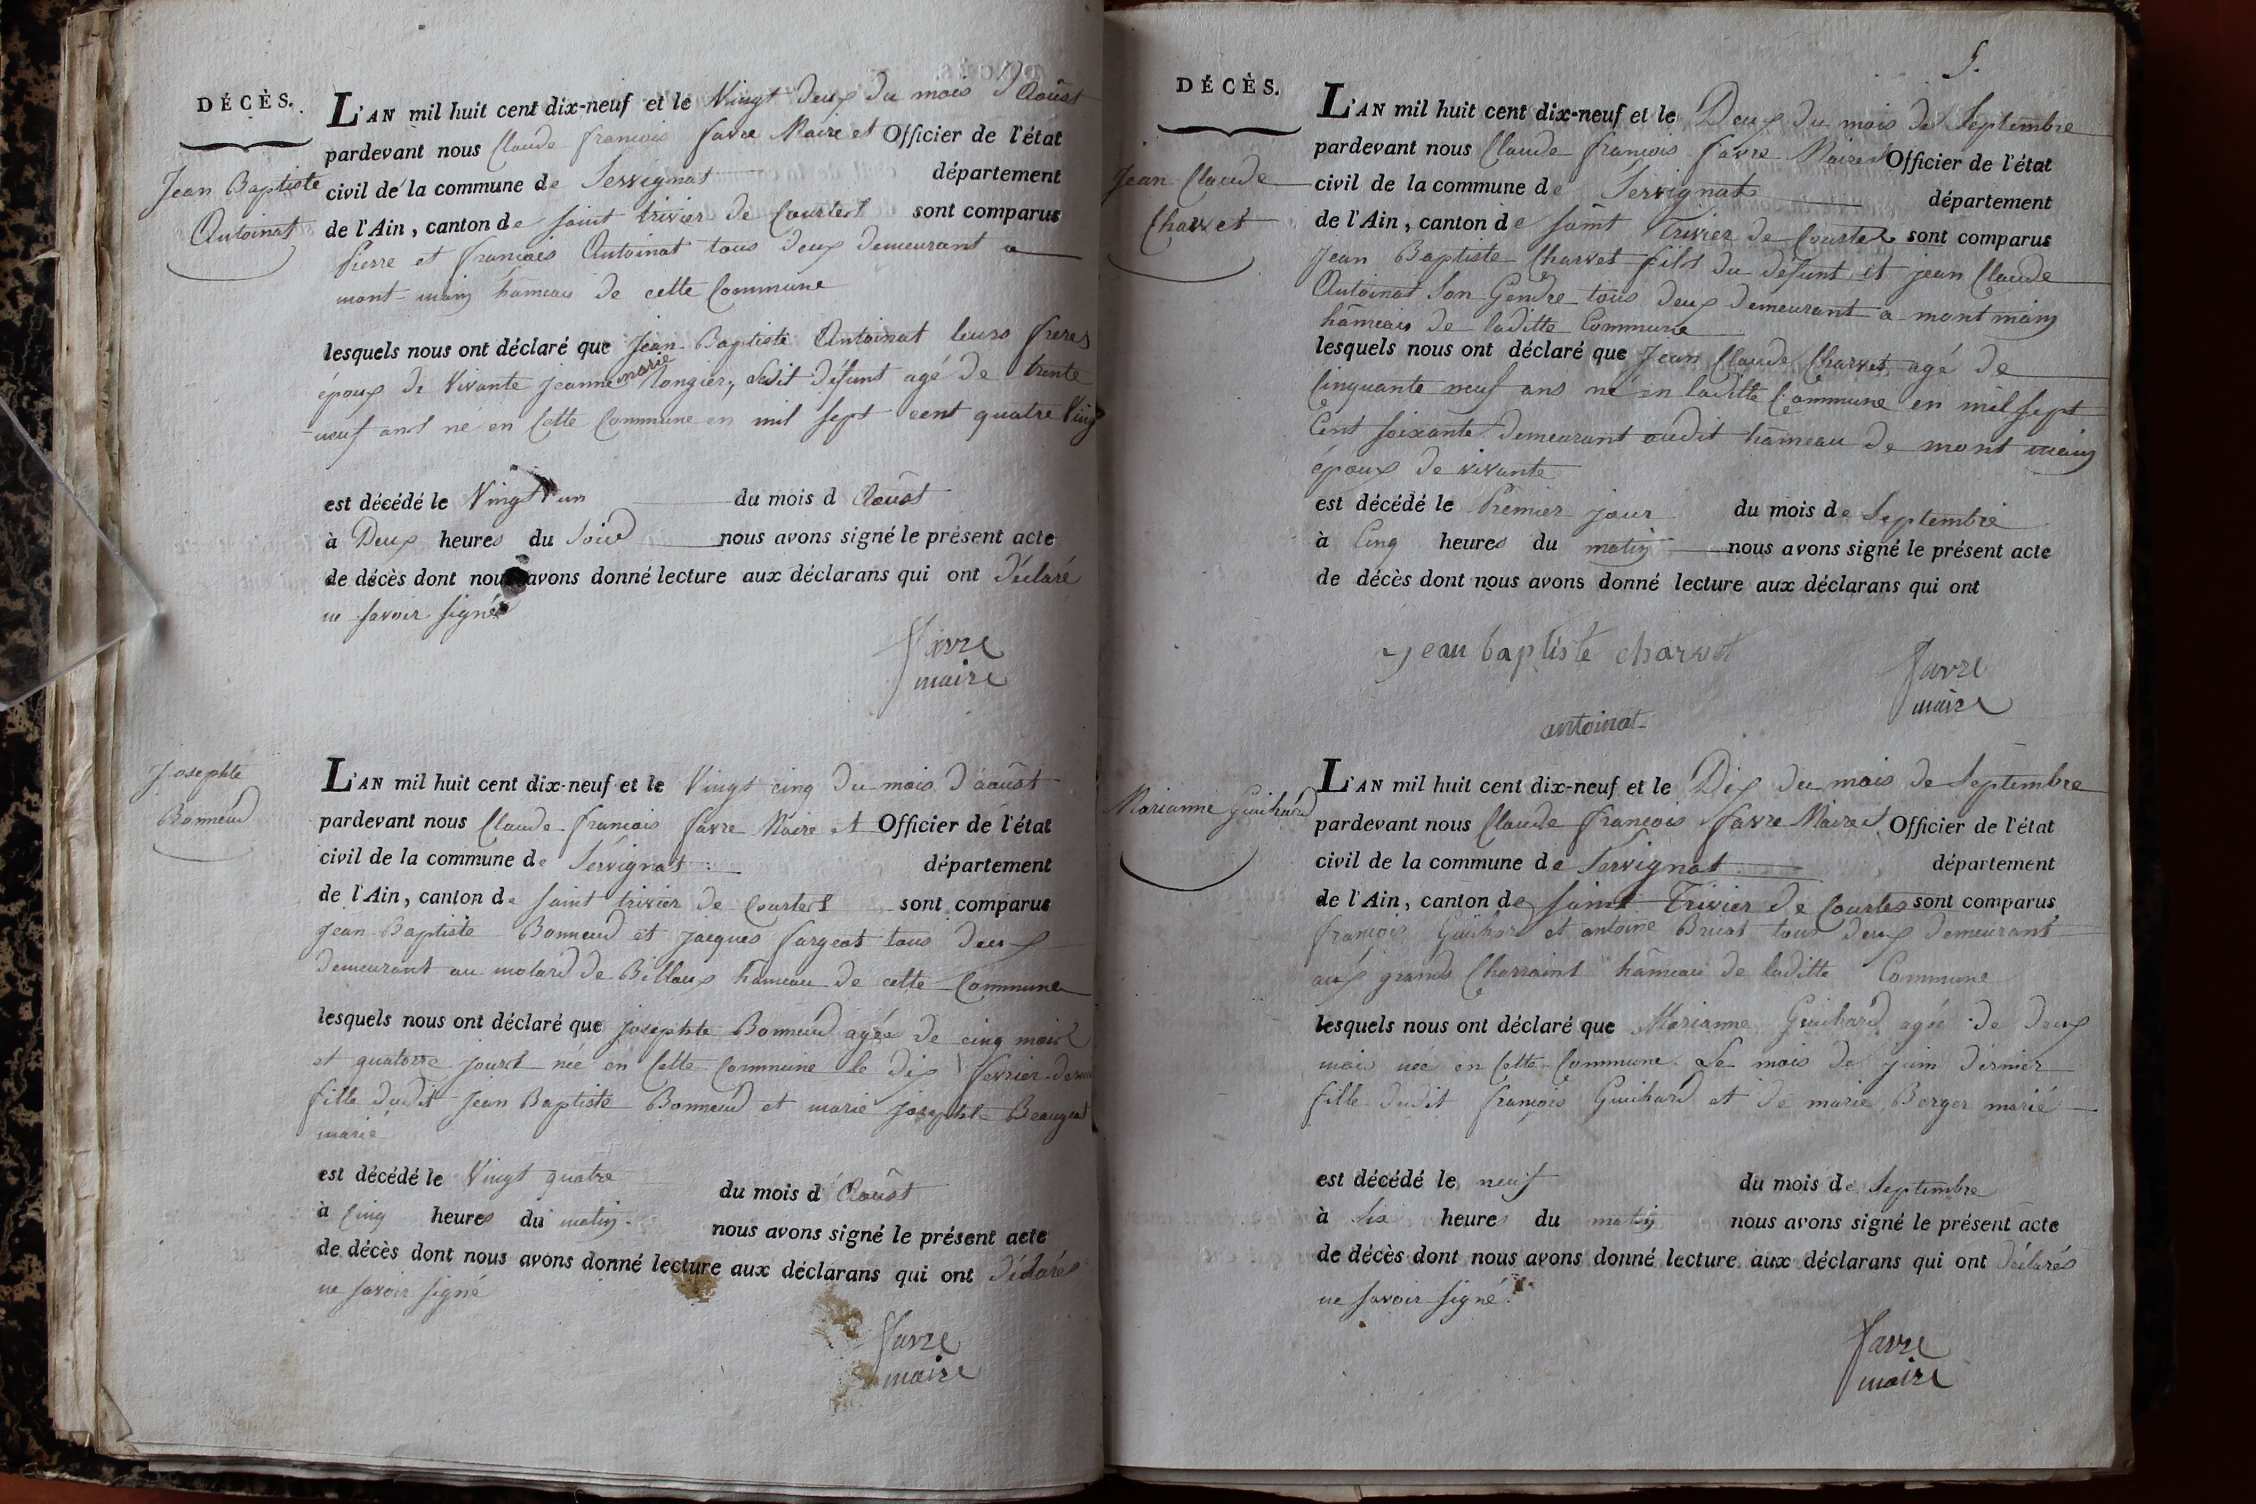 DÉCÈS.
Jean Baptiste
Antoinat
L'AN mil huit cent dix-neuf et le Vingt Deux du mois d'Aoûst
pardevant nous Claude françois favre Maire et Officier de l'état
civil de la commune de Servignat département
de l'Ain, canton de saint trivier de Courtes sont comparus
Pierre et françois Antoinat tous deux demeurant a
mont-main hameau de cette Commune
lesquels nous ont déclaré que Jean Baptiste Antoinat leurs freres
époux de vivante jeanne marie longier, ledit défunt agé de trente
neuf ans né en Cette Commune en mil sept cent quatre Vingt
est décédé le Vingt un du mois d'Aoûst
à Deux heures du soir nous avons signé le présent acte
de décès dont nous avons donné lecture aux déclarans qui ont déclaré
ne savoir signé
favre
maire
Josephte
Bonneud
L'AN mil huit cent dix-neuf et le Vingt cinq du mois d'aoûst
pardevant nous Claude françois favre Maire et Officier de l'état
civil de la commune de Servignat département
de l'Ain, canton de saint trivier de Courtes sont comparus
Jean Baptiste Bonneud et jacques fargeot tous deux
demeurant au molard de Billoux hameau de cette Commune
lesquels nous ont déclaré que josephte Bonneud agée de cinq mois
et quatorze jours née en Cette Commune le dix fevrier
fille dudit Jean Baptiste Bonneud et marie josephte
marié
est décédé le Vingt quatre du mois d'Aoûst
à Cinq heures du matin nous avons signé le présent acte
de décès dont nous avons donné lecture aux déclarans qui ont déclarés
ne savoir signé
favre
maire
5.
DÉCÈS.
Jean Claude
Charvet
L'AN mil huit cent dix-neuf et le Deux du mois de Septembre
pardevant nous Claude françois favre Maire et Officier de l'état
civil de la commune de Servignat département
de l'Ain, canton de saint Trivier de Courtes sont comparus
Jean Baptiste Charvet fils du defunt et jean Claude
Antoinat son Gendre tous deux demeurant a mont main
hameau de laditte Commune
lesquels nous ont déclaré que Jean Claude Charvet agé de
Cinquante neuf ans né en laditte Commune en mil sept
Cent soixante demeurant audit hameau de mont main
époux de vivante
est décédé le Premier jour du mois de Septembre
à Cinq heures du matin nous avons signé le présent acte
de décès dont nous avons donné lecture aux déclarans qui ont
jean baptiste charvet
favre
maire
antoinat
Marianne Guichard
L'AN mil huit cent dix-neuf et le Dix du mois de Septembre
pardevant nous Claude françois favre Maire et Officier de l'état
civil de la commune de Servignat département
de l'Ain, canton de saint Trivier de Courtes sont comparus
françois Guichard et antoine tous deux demeurant
aux grands hameau de laditte Commune
lesquels nous ont déclaré que Marianne Guichard agée de deux
mois née en Cette Commune Le mois de juin dernier
fille dudit françois Guichard et de marie Berger marié
est décédé le neuf du mois de Septembre
à six heures du matin nous avons signé le présent acte
de décès dont nous avons donné lecture aux déclarans qui ont déclarés
ne savoir signé
favre
maire